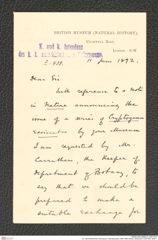 BRITISH MUSEUM (NATURAL HISTORY)
CROMWELL ROAD
LONDON: S.W.
K. und k. Intendanz
des k. k.
Z. 438.
11 June 1892
Dear Sir
With reference to a note
in Nature announcing the
issue of a series of Cryptogamæ
exsiccatæ by your Museum
I am requested by Mr.
Carruthers, the Keeper of
Department of Botany, to
say that we should be
prepared to make a
suitable exchange for